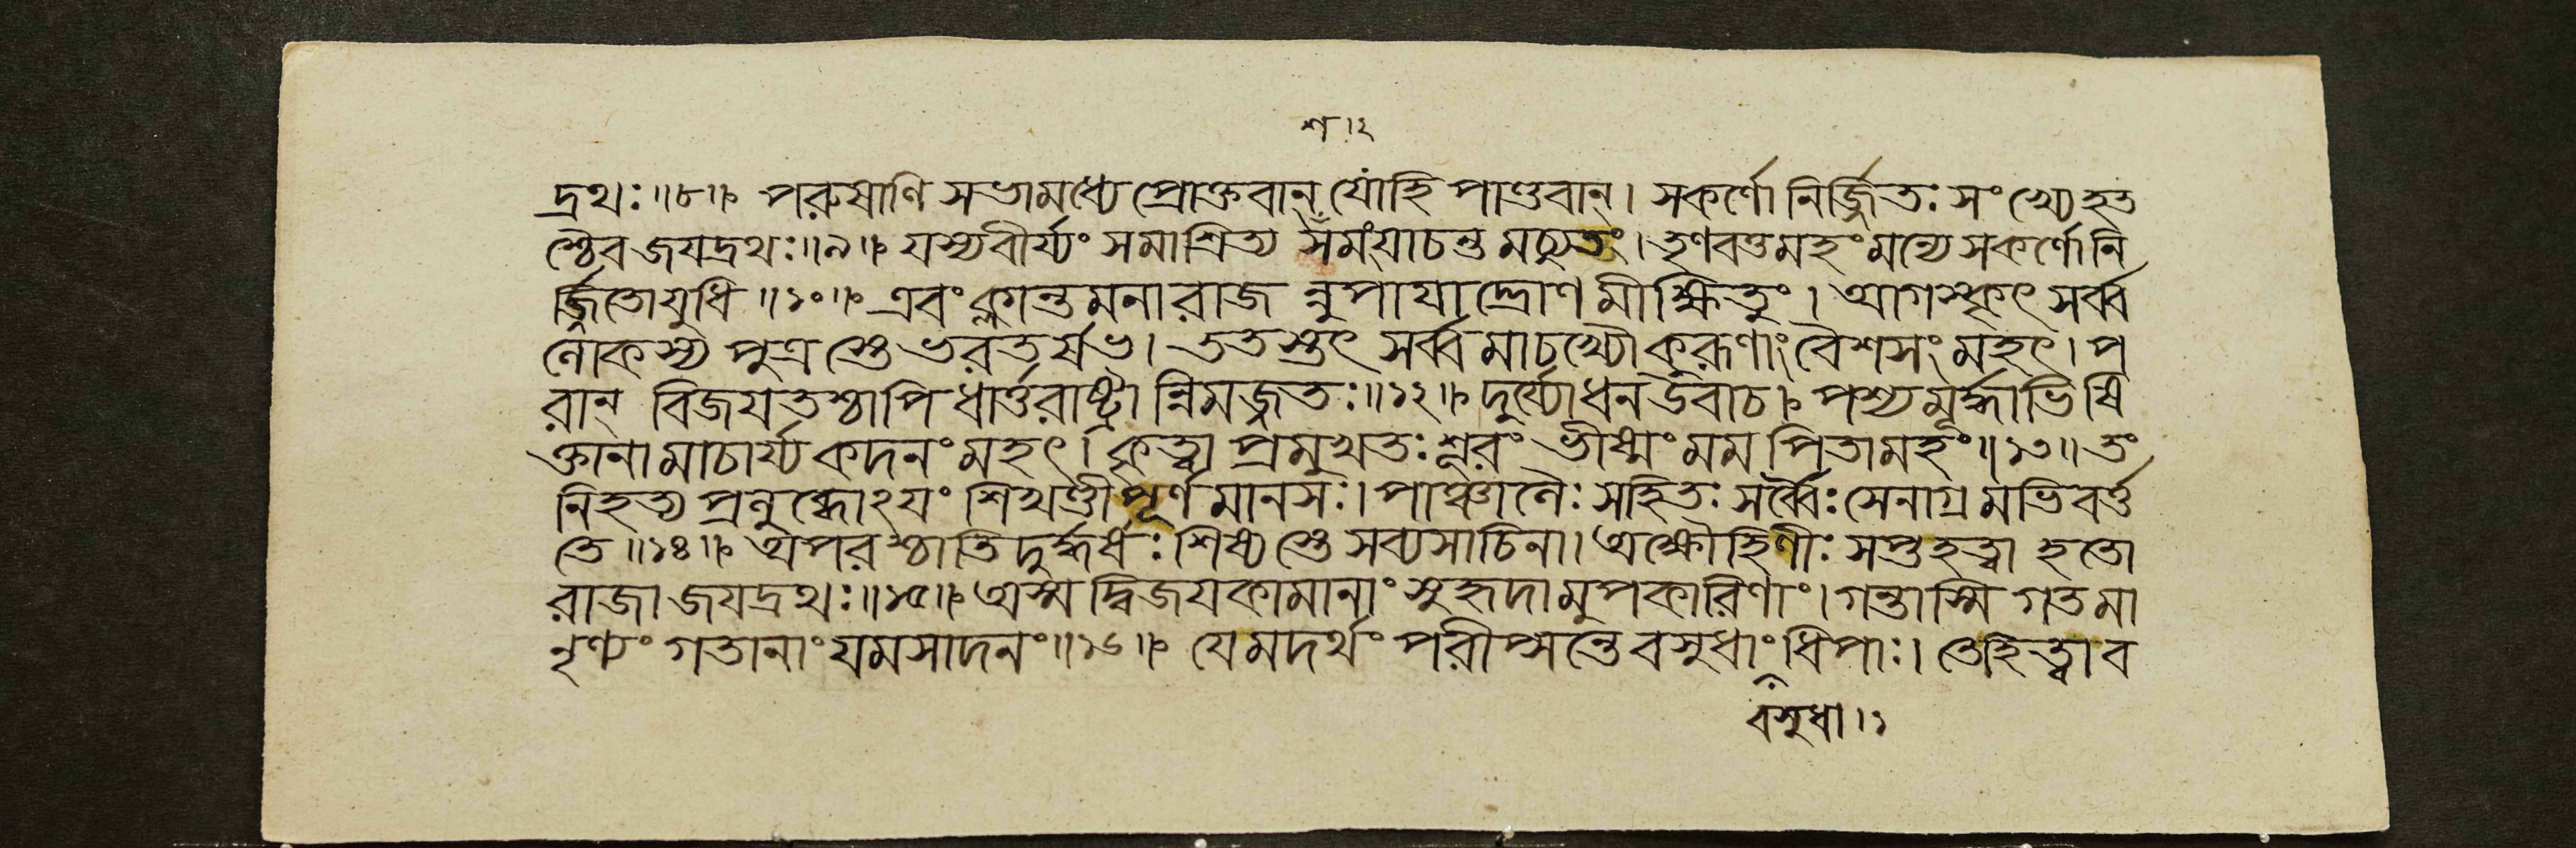 শ ৷২
দ্রথঃ॥৮॥ পরুষাণি সভামধ্যে প্রোক্তবান্ যোহি পাণ্ডবান্। সকর্ণো নির্জ্জিতঃ সংখ্যে হত
শ্চৈব জযদ্রথঃ॥৯॥ যস্য বীর্য্যং সমাশ্রিত্য সমংযাচন্ত মচ্যুতং। তৃণবত্তমহং মন্যে সকর্ণো নি
র্জ্জিতো যুধি॥১০॥ এবং ক্লান্তমনা রাজ ন্নুপাযাদ্দ্রোণ মীক্ষিতুং। আগস্কৃৎ সর্ব্ব
লোকস্য পুত্র স্তে ভরতর্ষভ। ততস্তৎ সর্ব্বমাচখ্যৌ কুরূণাং বৈশসং মহৎ। প
রান্ বিজযতশ্চাপি ধার্ত্তরাষ্ট্রা ন্নিমজ্জতঃ॥১২॥ দুর্য্যোধন উবাচ॥ পশ্য মূর্দ্ধাভিষি
ক্তানামাচার্য্য কদনং মহৎ। কৃত্বা প্রমুখতঃ শূরং ভীষ্মং মম পিতামহং॥১৩॥ তং
নিহত্য প্রলুব্ধোঽযং শিখণ্ডী পূর্ণমানসঃ। পাঞ্চালৈঃ সহিতঃ সর্ব্বৈঃ সেনাগ্রমভিবর্ত্ত
তে॥১৪॥ অপরশ্চাতি দুর্দ্ধর্ষঃ শিষ্য স্তে সব্যসাচিনা। অক্ষৌহিণীঃ সপ্ত হত্বা হতো
রাজা জযদ্রথঃ॥১৫॥ অস্মদ্বিজযকামানাং সুহৃদামুপকারিণাং। গন্তাস্মি গতমা
নৃণ্যং গতানাং যমসাদনং॥১৬॥ যে মদর্থং পরীপ্সন্তে বসুধাং ধিপাঃ। তে হিত্বা ব
বসুধা ৷১